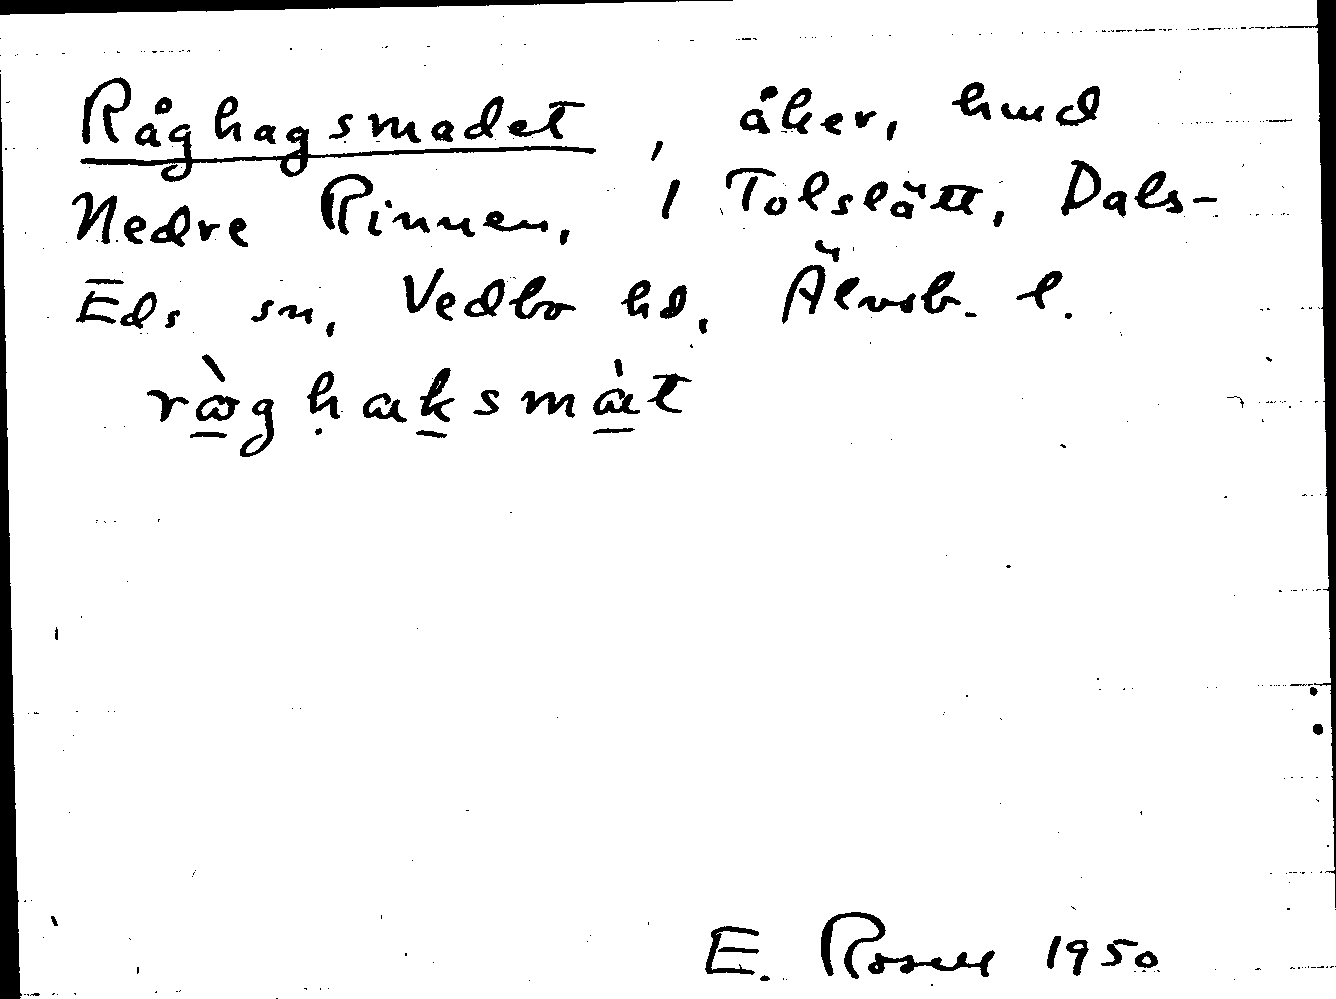 Råghagsmadet, åker, hmd
Nedre Rinnen, 1 Tolslätt, Dals-
Eds sn, Vedbo hd, Älvsb. l.
E. Rosell 1950